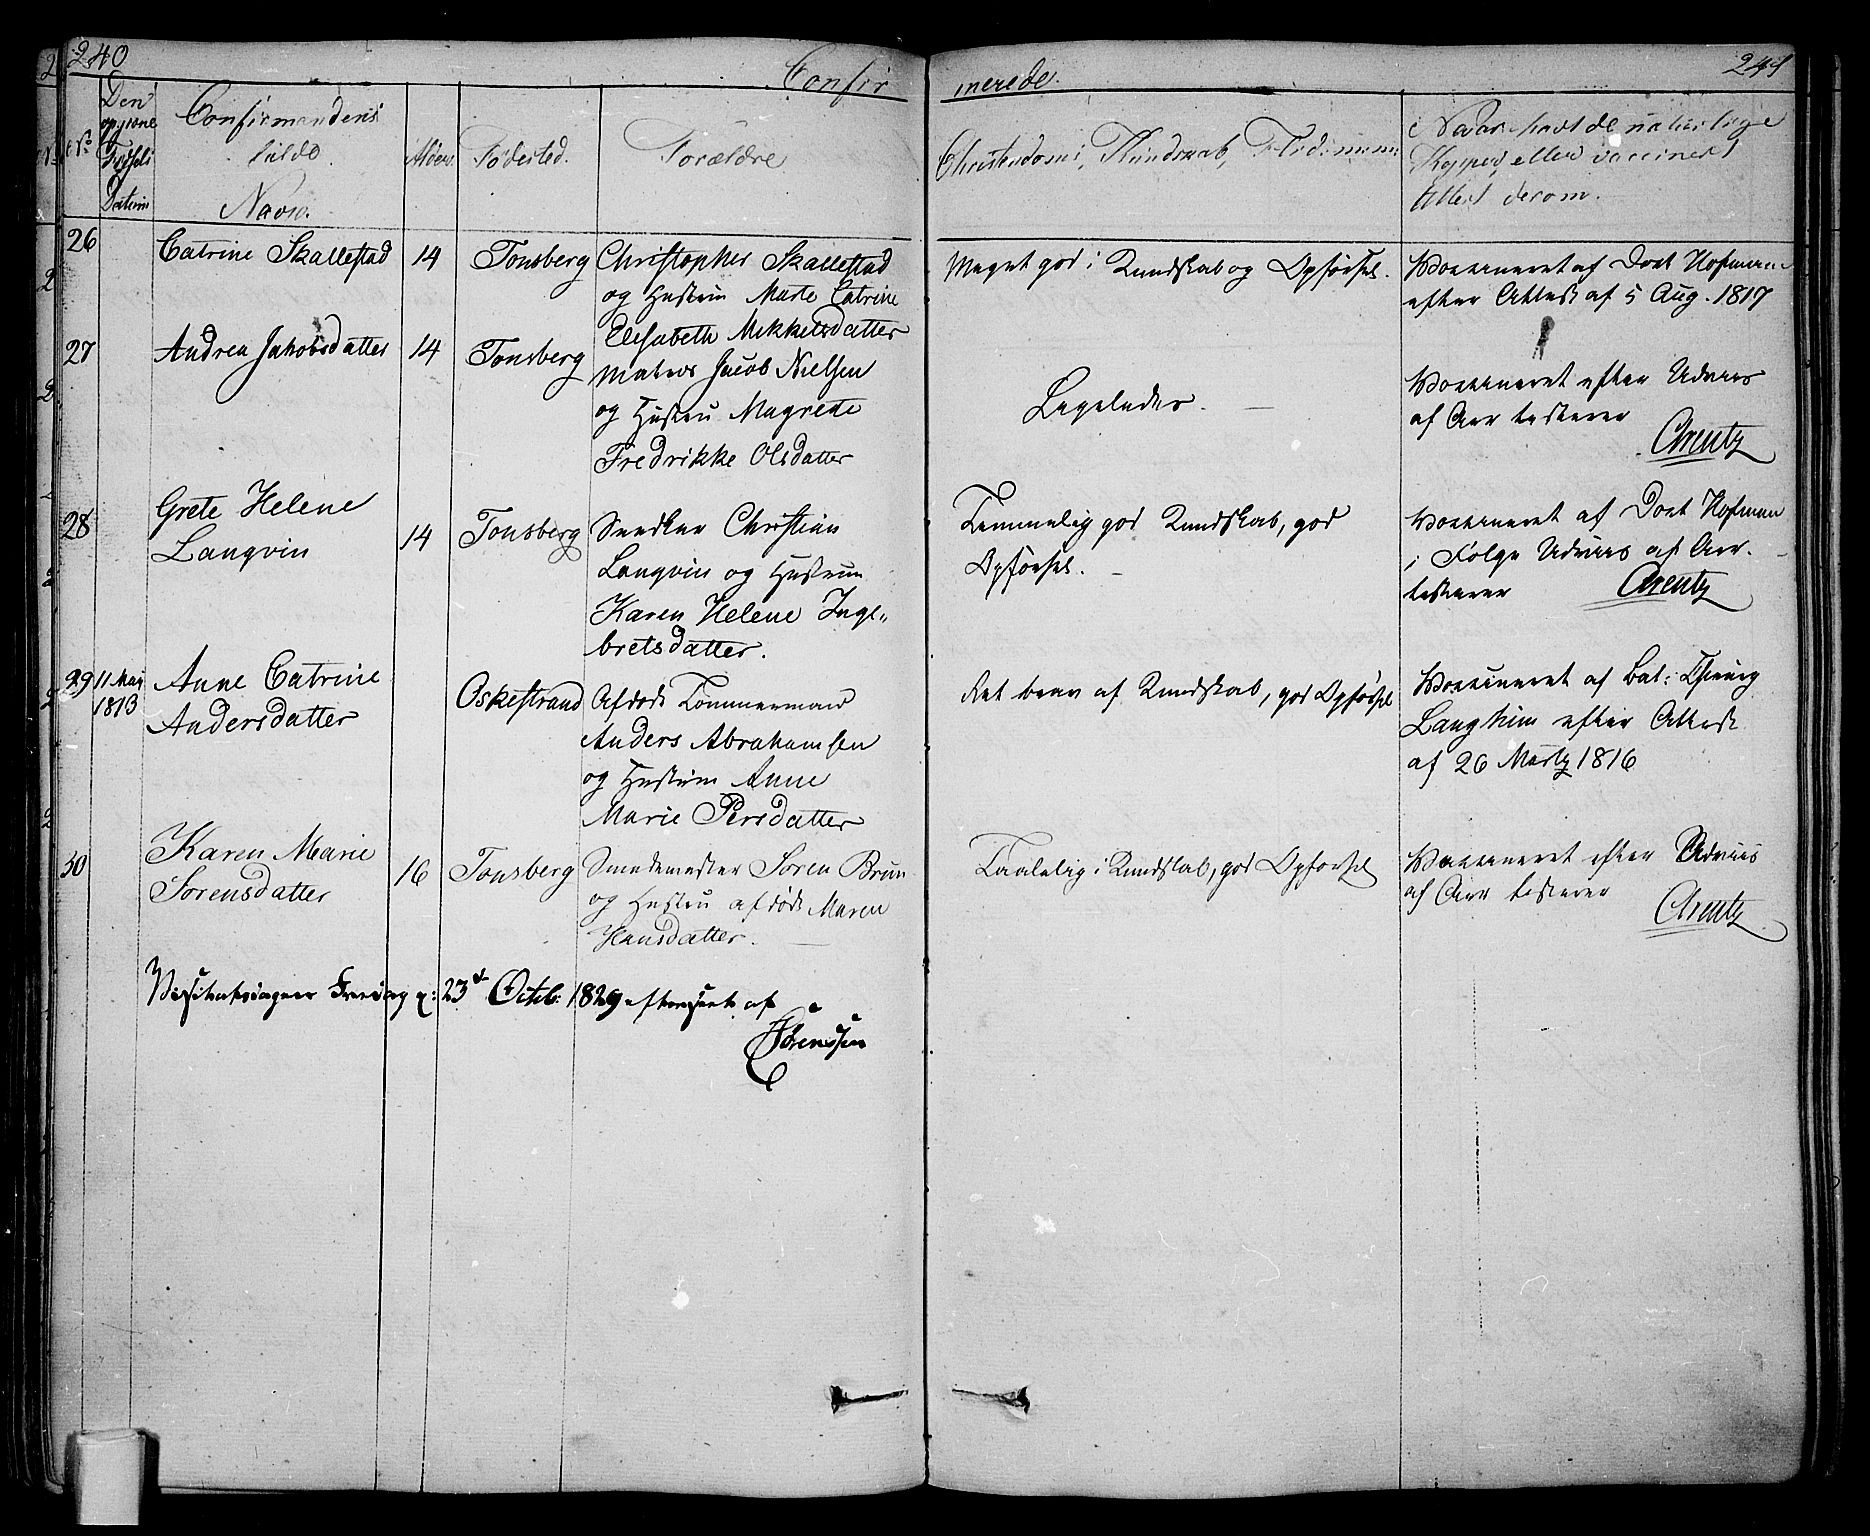 240
Confir
merede.
241
No
Den
opgivne
Fødsels
Datum
Confirmandens
fulde
Navn.
Alder.
Fødested.
Forældre
Christendoms, Kundskab, Flid
Naar havt de naturlige
Kopper, eller vaccineret
Attest derom.
26
Catrine Skallestad
14
Tonsberg
Christopher Skallestad
og Hustru Marte Catrine
Elisabeth Mikkelsdatter
Meget god i Kundskab og Opførsel.
Vaccineret af Doct Hofman
efter Attest af 5 Aug. 1817
27
Andrea Jakobsdatter
14
Tonsberg
Matros Jacob Nielsen
og Hustru Magrete
Fredrikke Olsdatter
Ligeledes.
Vaccineret efter Udviis
af Arv testerer
Arentz
28
Grete Helene
Langvin
14
Tonsberg
Snedker Christian
Langvin og Hustrue
Karen Helene Inge-
bretsdatter.
Temmelig god Kundskab, god
Opførsel.
Vaccineret af Doct Hofman
i Følge Udviis af Arv-
testerer
Arentz
29
11 Mai
1813
Anne Catrine
Andersdatter
Oskestrand
Afdøde Tømmermand
Anders Abrahamsen
og Hustrue Anne
Marie Persdatter
Ret brav af Kundskab, god Opførsel
Vaccineret af Bat: Chirurg
Langhim efter Attest
af 26 Martz 1816
30
Karen Marie
Sørensdatter
16
Tonsberg
Smedemester Søren Brun
og Hustru afdøde Maren
Hansdatter.
Taalelig i Kundskab, god Opførsel
Vaccineret efter Udviis
af Arv testerer
Arentz
Visitatsdagen Fredag d: 23d Octob: 1829 efterseet af
Sørenssen